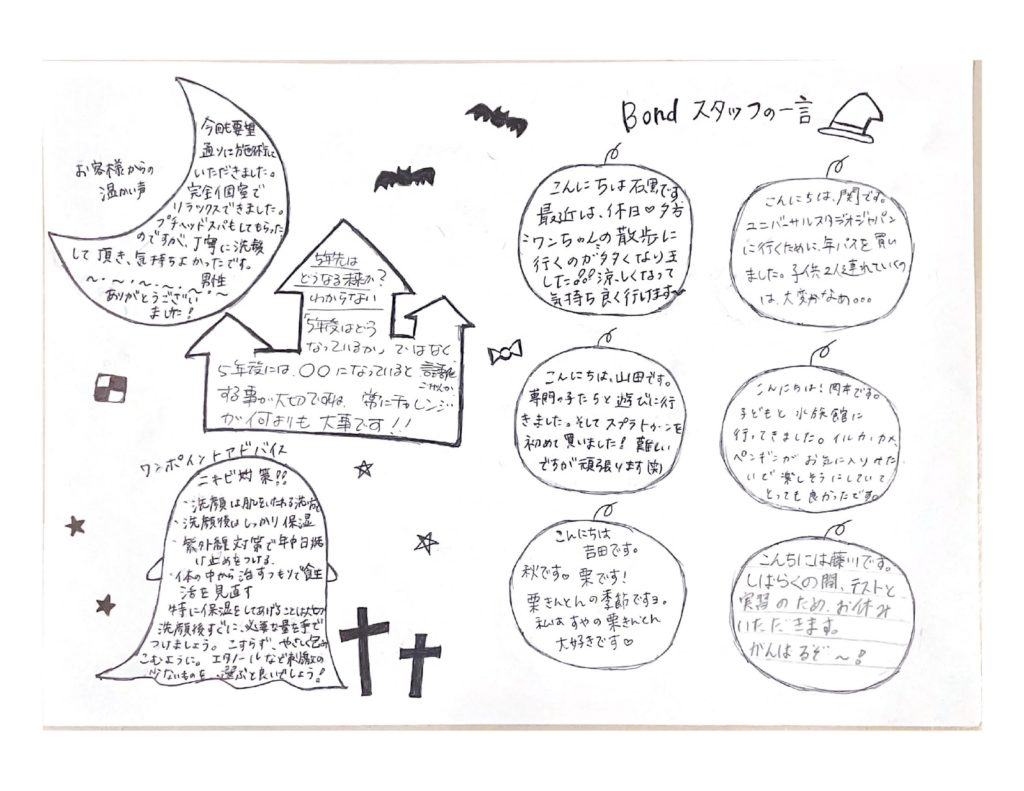 お客様からの
温かい声
今回も要望
通りに施術して
いただきました。
完全個室で
リラックスできました。
プチヘッドスパもしてもらった
のですが、丁寧に洗顔
して頂き、気持ちよかったです。
男性
ありがとうござい
ました!
5年先は
どうなる未来か?
わからない
「5年後はどう
なっているか」ではなく
5年後には、〇〇になっていると 言語化
する事が大切ですね。常にチャレンジ
が何よりも大事です!!
ワンポイントアドバイス
ニキビ対策!!
・洗顔は肌をいたわる洗顔
・洗顔後はしっかり保湿
・紫外線対策で年中日焼
け止めをつける。
・体の中から治すつもりで食生
活を見直す
特に保湿をしてあげることは大切
洗顔後すぐに、必要な量を手で
つけましょう。こすらず、やさしく包み
こむように。エタノールなど刺激の
少ないものを選ぶと良いでしょう!
Bond スタッフの一言
こんにちは石黒です
最近は、休日♡夕方
ワンちゃんの散歩に
行くのが多くなりま
した!!! 涼しくなって
気持ち良く行けます〜
こんにちは、関です。
ユニバーサルスタジオジャパン
に行くために、年パスを買い
ました。子供2人連れていくの
は、大変かなぁ。。。
こんにちは、山田です。
専門の子たちと遊びに行
きました。そしてスプラトゥーンを
初めて買いました!難しい
ですが頑張ります(笑)
こんにちは!岡本です。
子どもと水族館に
行ってきました。イルカ、カメ、
ペンギンがお気に入りみた
いで楽しそうにしていて
とっても良かったです。
こんにちは
吉田です。
秋です♡栗です!
栗きんとんの季節ですヨ。
私はすやの栗きんとん
大好きです♡
こんちには藤川です。
しばらくの間、テストと
実習のため、お休み
いただきます。
がんばるぞ〜!